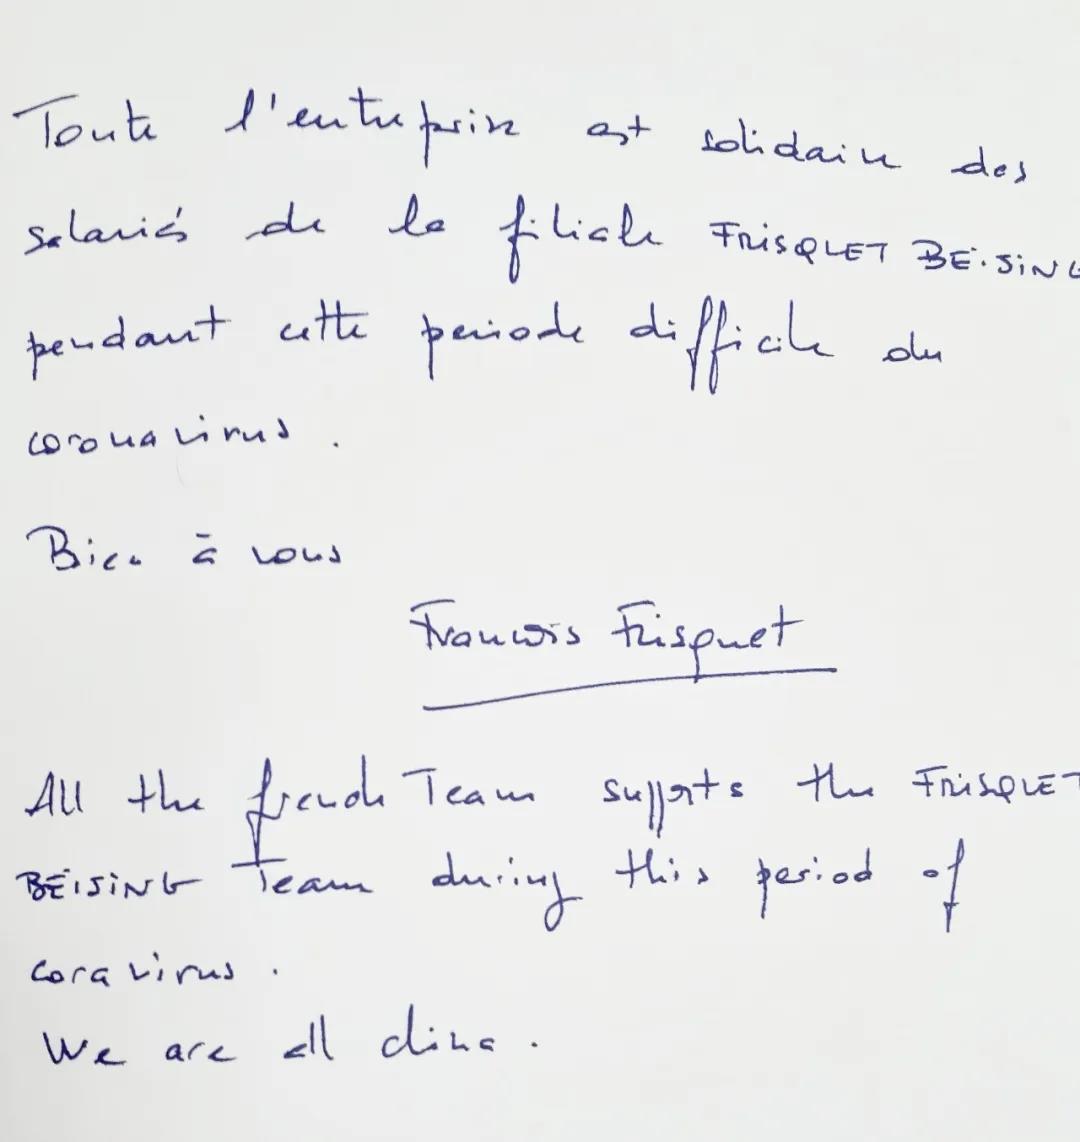 Toute l'entreprise est solidaire des
salariés de la filiale FRISQUET BEISING
pendant cette periode difficile du
coronavirus.
Bien à vous
Francois Frisquet
All the french Team supports the FRISQUET
BEISING Team during this period of
coravirus.
We are all china.